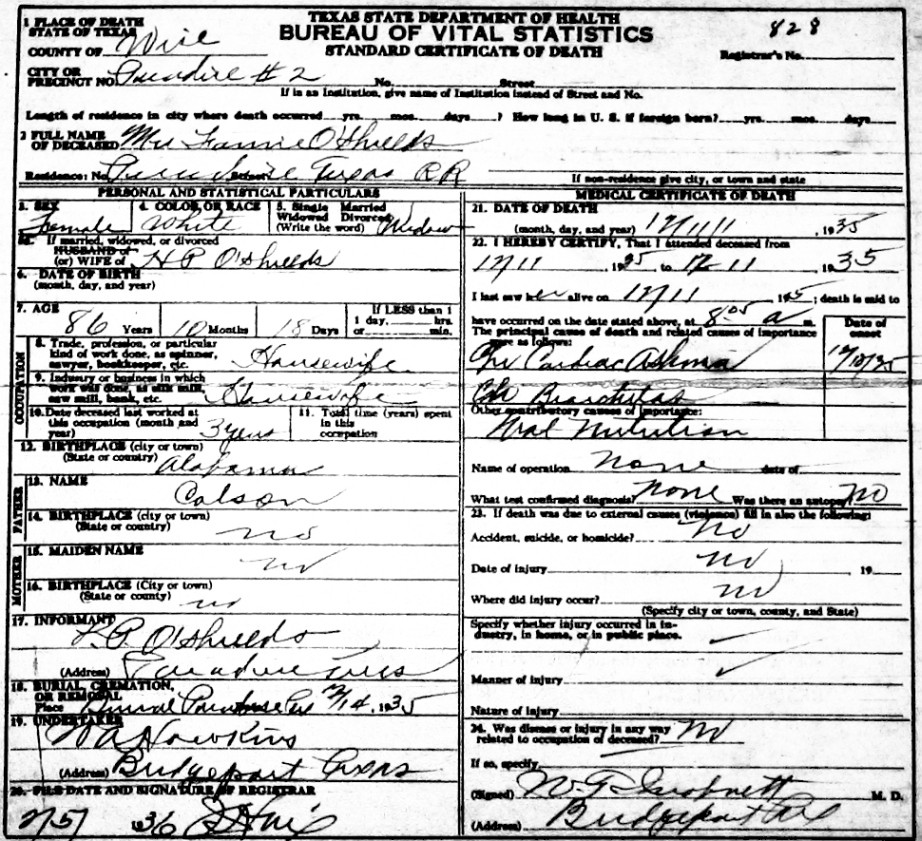 TEXAS STATE DEPARTMENT OF HEALTH
BUREAU OF VITAL STATISTICS
STANDARD CERTIFICATE OF DEATH
828
Registrar's No.
1 PLACE OF DEATH
STATE OF TEXAS
COUNTY OF Wise
CITY OR
PRECINCT NO. # 2 No. Street
If in an Institution, give name of Institution instead of Street and No.
Length of residence in city where death occurred yrs. mos. days ? How long in U. S. if foreign born? yrs. mos. days
2 FULL NAME
OF DECEASED Mrs Fannie O'Shields
Residence: No. Street Texas RR If non-residence give city, or town and state
PERSONAL AND STATISTICAL PARTICULARS
3. SEX Female
4. COLOR OR RACE White
5. Single Married
Widowed Divorced
(Write the word) Widow
5a. If married, widowed, or divorced
HUSBAND of
(or) WIFE of H P O'Shields
6. DATE OF BIRTH
(month, day, and year)
7. AGE 86 Years 10 Months 18 Days
If LESS than 1
1 day, hrs.
or min.
OCCUPATION
8. Trade, profession, or particular
kind of work done, as spinner,
sawyer, bookkeeper, etc. Housewife
9. Industry or business in which
work was done, as silk mill,
saw mill, bank, etc. Housewife
10. Date deceased last worked at
this occupation (month and
year) 3 years
11. Total time (years) spent
in this
occupation
12. BIRTHPLACE (city or town)
(State or country) Alabama
FATHER
13. NAME Colson
14. BIRTHPLACE (city or town)
(State or country) no
MOTHER
15. MAIDEN NAME no
16. BIRTHPLACE (City or town)
(State or county) no
17. INFORMANT
O'Shields
(Address) Paradise Texas
18. BURIAL, CREMATION,
OR REMOVAL
Place 12/14, 1935
19. UNDERTAKER
W A Hawkins
(Address) Bridgeport Texas
20. FILE DATE AND SIGNATURE OF REGISTRAR
1936
MEDICAL CERTIFICATE OF DEATH
21. DATE OF DEATH
(month, day, and year) , 1935
22. I HEREBY CERTIFY, That I attended deceased from
12/11 1935 to 12-11 1935
I last saw her alive on 12/11 1935; death is said to
have occurred on the date stated above, at 8 05 a m.
The principal cause of death and related causes of importance
were as follows:
Date of
onset
Chr Cardiac Asthma
Chr
Other contributory causes of importance:
Name of operation none date of
What test confirmed diagnosis? none Was there an autopsy No
23. If death was due to external causes (violence) fill in also the following:
Accident, suicide, or homicide? No
Date of injury no 19
Where did injury occur? no
(Specify city or town, county, and State)
Specify whether injury occurred in in-
dustry, in home, or in public place.
Manner of injury
Nature of injury
24. Was disease or injury in any way
related to occupation of deceased? No
If so, specify
(Signed) M. D.
(Address) Bridgeport Tex